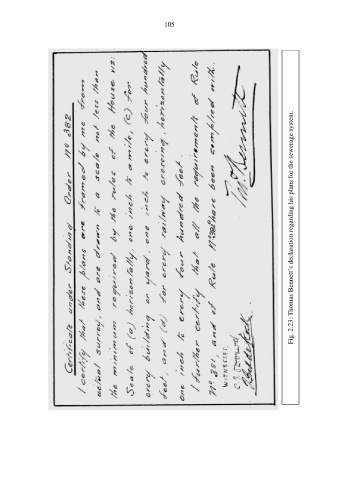 105
Certificate under Standing Order Nº 382
I certify that these plans are framed by me from
actual survey, and are drawn to a scale not less than
the minimum required by the rules of the House viz:
Scale of (a) horizontally one inch to a mile, (c) for
every building or yard, one inch to every four hundred
feet, and (d) for every railway crossing, horizontally
one inch to every four hundred feet.
I further certify that all the requirements of Rule
Nº 381, and of Rule Nº 382 have been complied with.
WITNESSES,
T. Bennett
Fig. 2.23: Thomas Bennett's declaration regarding his plans for the sewerage system.